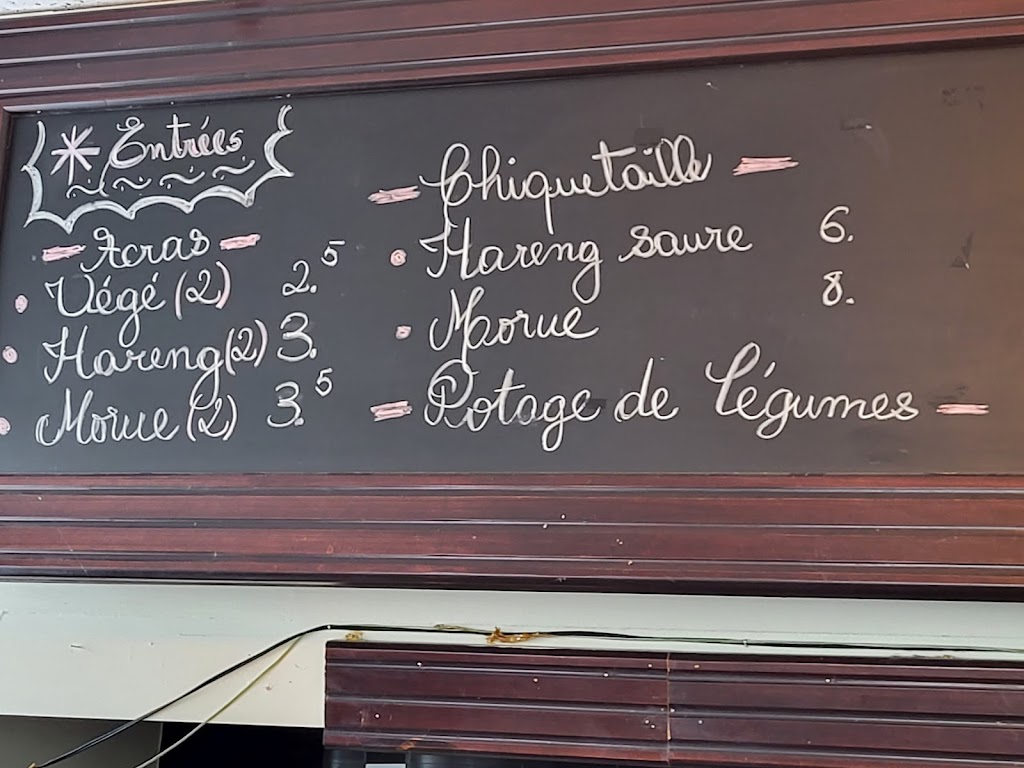 Entrées
Acras
Végé (2) 2.5
Hareng (2) 3.
Morue (2) 3.5
Chiquetaille
Hareng saure 6.
Morue 8.
Potage de légumes